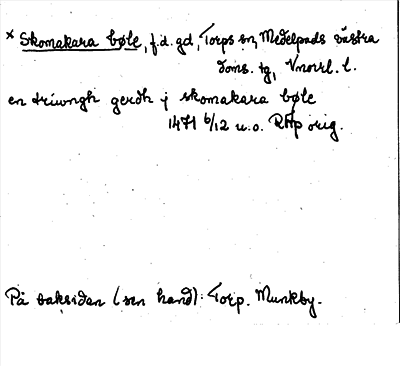 * Skomakara bøle, f.d. gd, Torps sn, Medelpads västra
doms. tg, Vnorrl. l.
en triwngh gerdh j skomakara bøle
1471 6/12 u.o. RAp orig.
På baksidan (sen hand): Torp. Munkby.